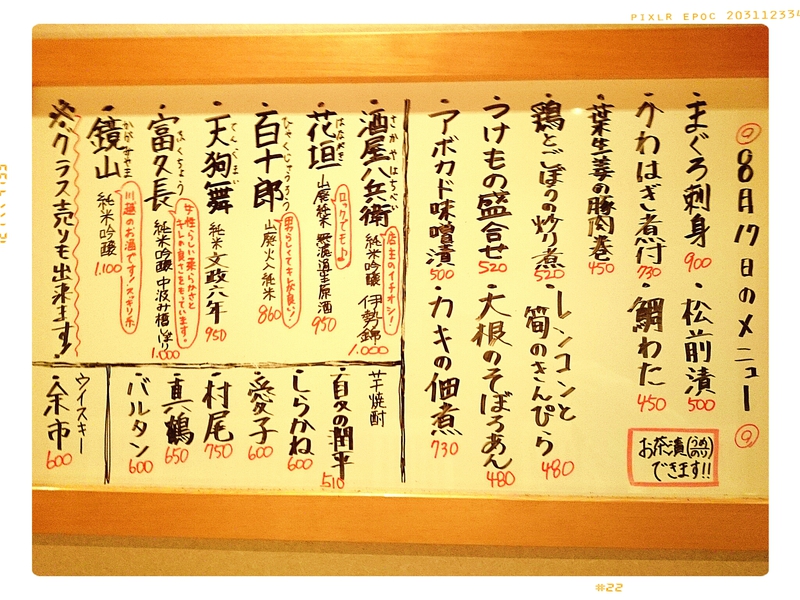 PIXLR EPOC 203112334
8月17日のメニュー
・まぐろ刺身 900
・松前漬 500
・かわはぎ煮付 730
・鯛わた 450
お茶漬(うめ のり)
できます!!
・葉生姜の豚肉巻 450
・鶏とごぼうの炒り煮 520
・レンコンと
筍のきんぴら 480
・つけもの盛合せ 520
・大根のそぼろあん 480
・アボカド味噌漬 500
・カキの佃煮 730
・酒屋八兵衛 純米吟醸 伊勢錦 1.000
さかやはちべい
店主のイチオシ!
・花垣 山廃純米 無濾過生原酒 950
はながき
ロックでも♪
・百十郎 山廃火入純米 860
ひゃくじゅうろう
男らしくてキレが良い!
・天狗舞 純米 文政六年 950
てんぐまい
・富久長 純米吟醸 中汲み槽しぼり 1.000
ふくちょう
女性らしい柔らかさと
キレの良さをもっています。
・鏡山 純米吟醸 1.100
かがみやま
川越のお酒です!スッキリ系
※グラス売りも出来ます!
芋焼酎
・百夕の潤平 510
・しらかね 600
・愛子 600
・村尾 750
・真鶴 650
・バルタン 600
ウイスキー
・余市 600
#22